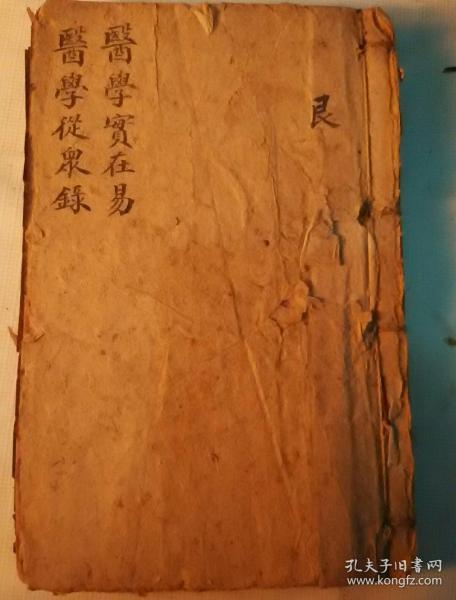 艮
醫學實在易
醫學從眾錄
孔夫子旧书网
www.kongfz.com